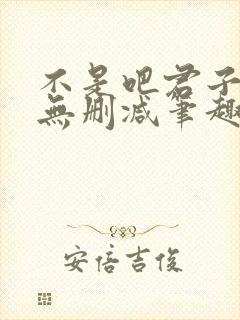 不是吧君子
無删减笔趣
安倍吉俊